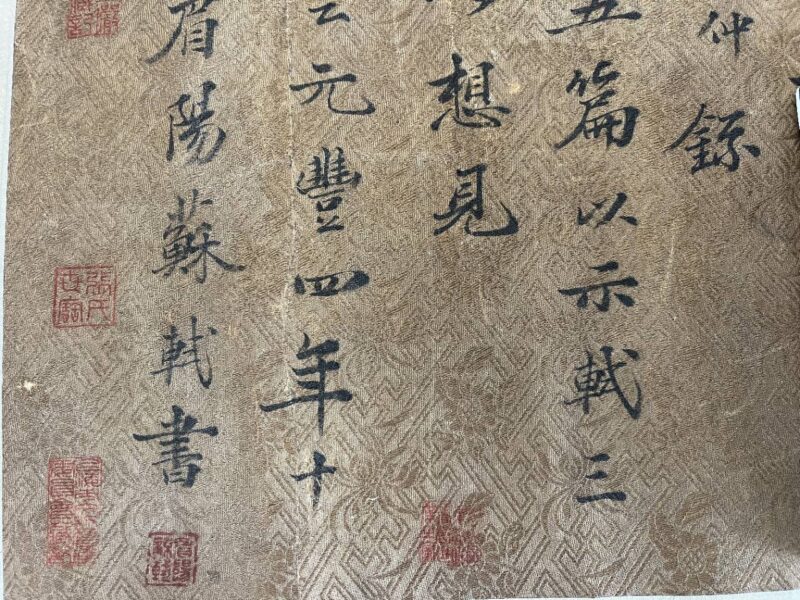 仲録
五篇以示軾三
想見
元豐四年十
眉陽蘇軾書
張氏